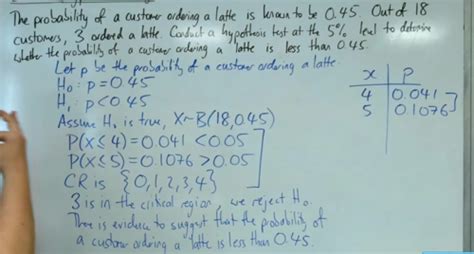 The probability of a customer ordering a latte is known to be 0.45. Out of 18
customers, 3 ordered a latte. Conduct a hypothesis test at the 5% level to determine
whether the probability of a customer ordering a latte is less than 0.45.
Let p be the probability of a customer ordering a latte.
H₀: p=0.45
H₁: p<0.45
Assume H₀ is true, X~B(18,0.45)
P(X≤4)=0.041 <0.05
P(X≤5)=0.1076 >0.05
CR is {0,1,2,3,4}
3 is in the critical region, we reject H₀.
There is evidence to suggest that the probability of
a customer ordering a latte is less than 0.45.
x P
4 0.041
5 0.1076